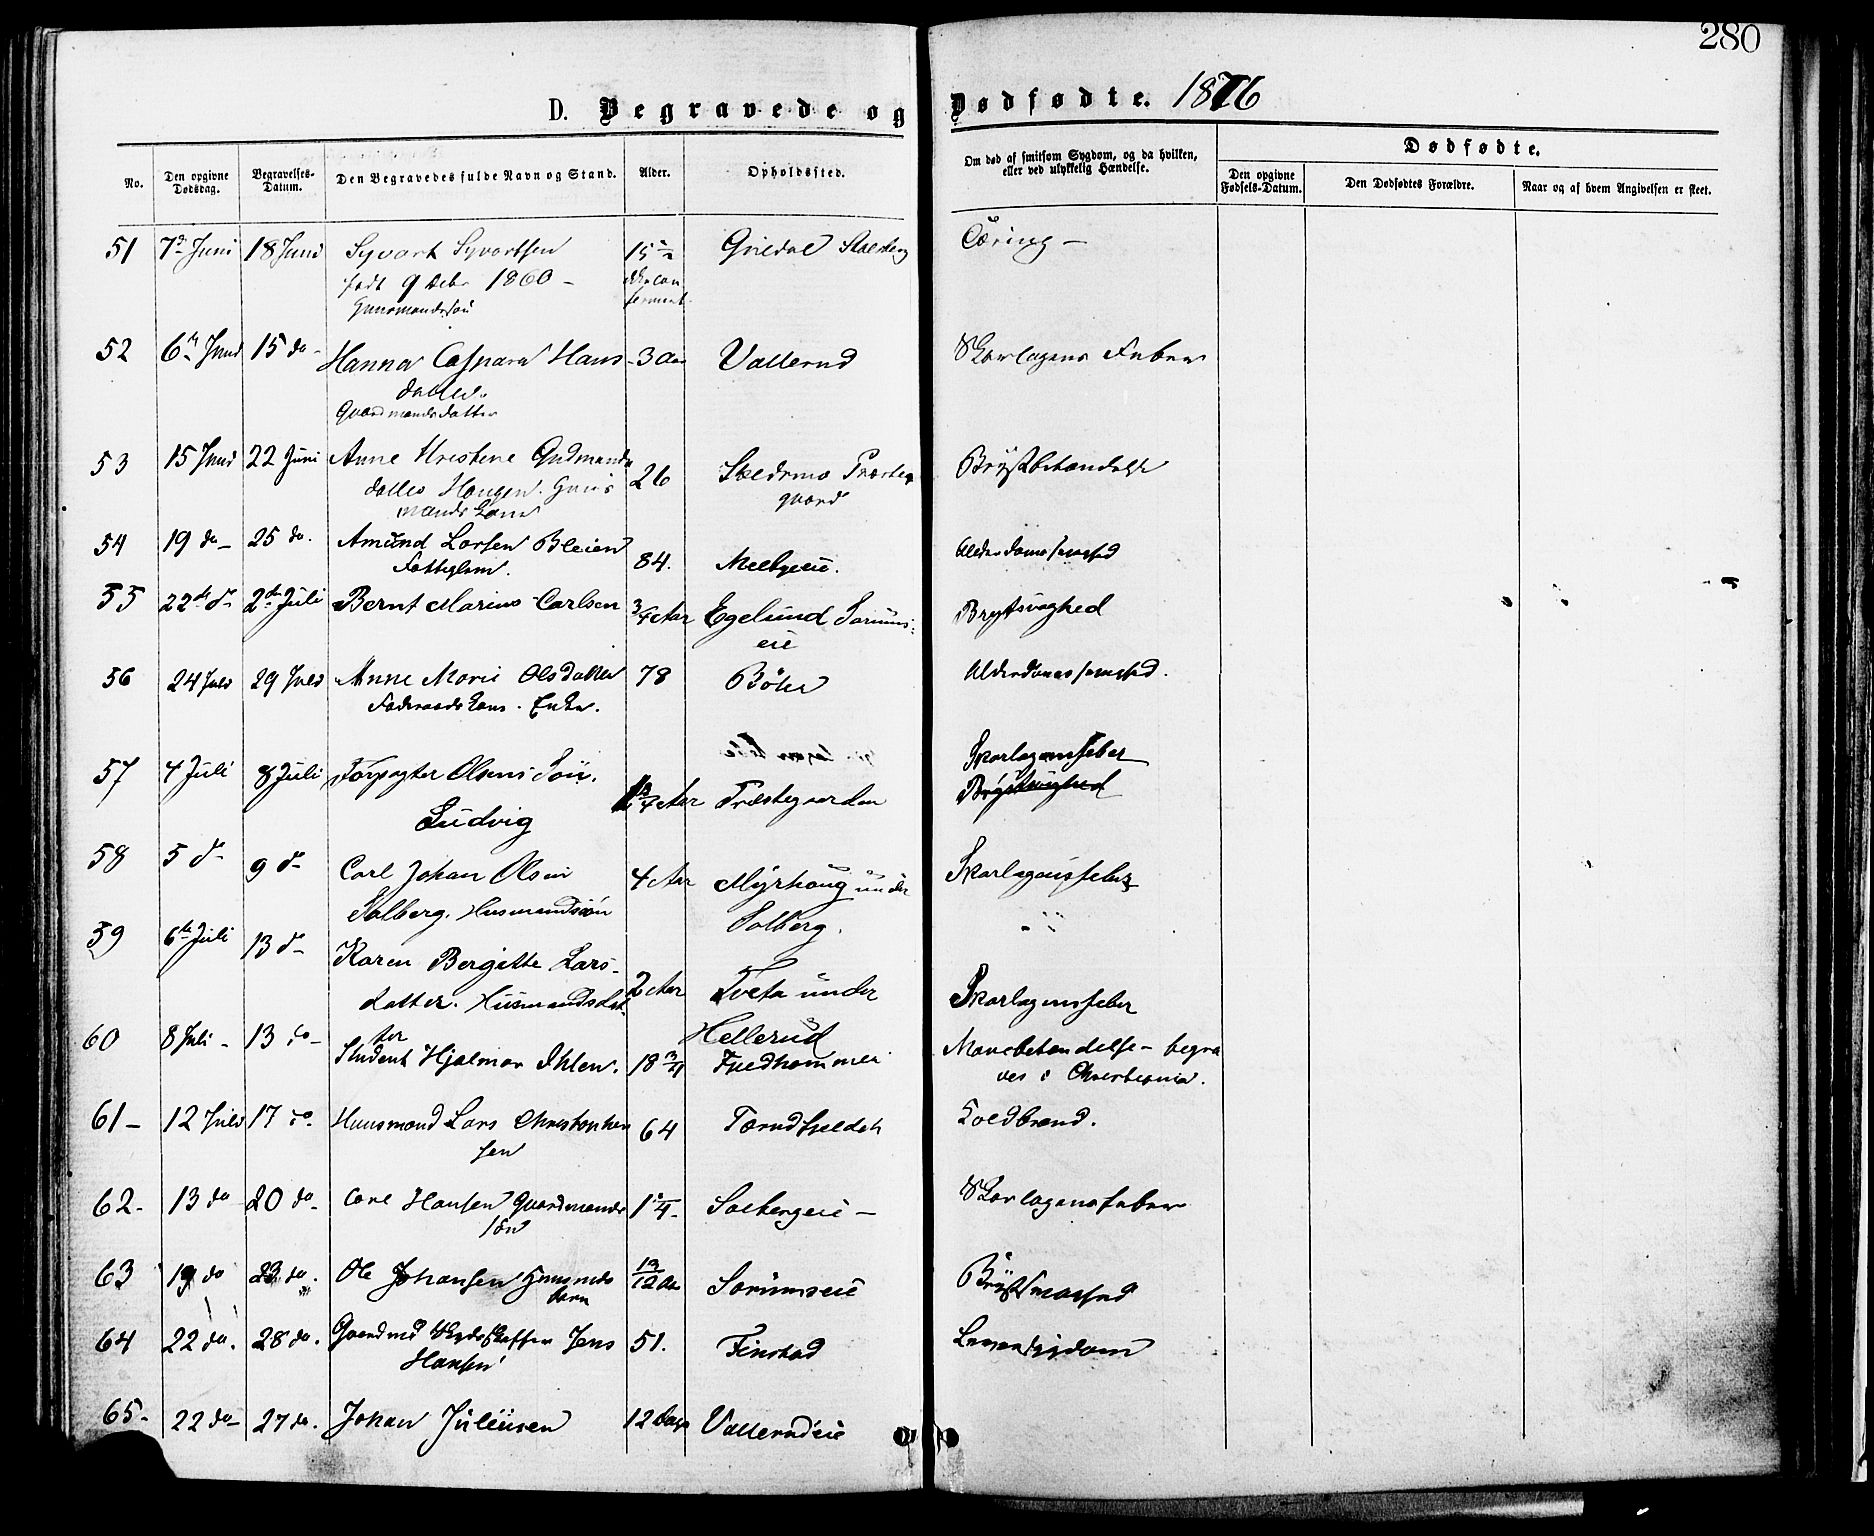 280
D. Begravede og Dødfødte. 1876
No.
Den opgivne Dødsdag.
Begravelses-Datum.
Den Begravedes fulde Navn og Stand.
Alder.
Opholdssted.
Om død af smitsom Sygdom, og da hvilken, eller ved ulykkelig Hændelse.
Dødfødte.
Den opgivne Fødsels-Datum.
Den Dødfødtes Forældre.
Naar og af hvem Angivelsen er skeet.
51 7de Juni 18 Juni Syvart Syvartsen 15 Tæring –
født 9 Debr 1860 –
52 6te Juni 15 do – Hanna Caspara Hans- 3 Aar Vallerud Skarlagens Feber
datter.
Gaardmandsdatter
53 15 Juni 22 Juni Anne Kristine Gudmunds 26 Skedsmo Præste Brystbetændelse
datter Haugen. Huus gaard
mandskone
54 19 do – 25 do. Amund Larsen Bleien 84. Alderdomssvaghed
Fattiglem.
55 22de do 2den Juli Bernt Marius Carlsen 3/4 Aar Egelund Sørums- Brystsvaghed
eie
56 24 Juni 29 Juni Anne Marie Olsdatter 78 Bøler Alderdomssvaghed.
Føderaadskone. Enke.
57 4 Juli 8 Juli Forpagter Olsens Søn. Skarlagensfeber
Ludvig Aar Præstegaarden Brystsvaghed
58 5 do 9 do Carl Johan Olsen 4 Aar Myrhaug under Skarlagensfeber
Solberg. Husmandssøn Solberg.
59 6te Juli 13 do Karen Bergitte Lars- 2 Aar Tveta under Skarlagensfeber
datter. Husmandsdat- Hellerud
ter
60 8 Juli – 13 do – Student Hjalmar Ihlen. 18 3/4 Betændelse – begra
ves i Christiania.
61 – 12 Juli 17 do. Huusmand Lars Christophersen 64 Koldbrand.
62 – 13 do 20 do – Carl Hansen Gaardmands 1 1/4 Solbergeie – Skarlagensfeber
søn
63 19 do 23 do. Ole Johansen Huusmds 13/12 Aar Sørumseie Brystsvaghed
barn
64 22 do. 28 do. Gaardmd Skydsskaffer Jens 51. Finstad Leversygdom
Hansen
65 – 22 do – 27 do. Johan Juliussen 12 Dage Valleru​deie